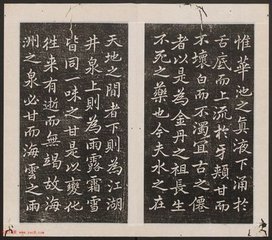 惟華池之真液下涌於
舌底而上流於牙頰甘而
不壞白而不濁宜古之僊
者以是為金丹之祖長生
不死之藥也今夫水之在
天地之間者下則為江湖
井泉上則為雨露霜雪
皆同一味之甘是以變化
往來有逝而無竭故海
洲之泉必甘而海雲之雨